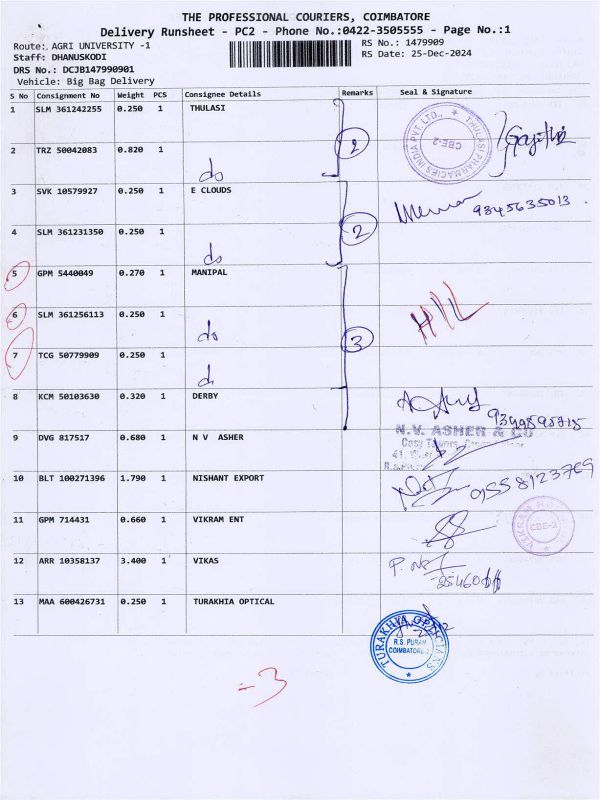 THE PROFESSIONAL COURIERS, COIMBATORE
Delivery Runsheet - PC2 - Phone No.:0422-3505555 - Page No.:1
Route: AGRI UNIVERSITY -1
RS No.: 1479909
Staff: DHANUSKODI
RS Date: 25-Dec-2024
DRS No.: DCJB147990901
Vehicle: Big Bag Delivery
S No Consignment No Weight PCS Consignee Details Remarks Seal & Signature
1 SLM 361242255 0.250 1 THULASI
THULASI PHARMACIES INDIA PVT. LTD.,
CBE-2
2 TRZ 50042083 0.820 1
do
1
3 SVK 10579927 0.250 1 E CLOUDS
9345635013
4 SLM 361231350 0.250 1
do
2
5 GPM 5440049 0.270 1 MANIPAL
6 SLM 361256113 0.250 1
do
3
7 TCG 50779909 0.250 1
8 KCM 50103630 0.320 1 DERBY
9 DVG 817517 0.680 1 N V ASHER
N.V. ASHER & CO
10 BLT 100271396 1.790 1 NISHANT EXPORT
11 GPM 714431 0.660 1 VIKRAM ENT
CBE-2
12 ARR 10358137 3.400 1 VIKAS
13 MAA 600426731 0.250 1 TURAKHIA OPTICAL
TURAKHIA OPTICIANS
R.S. PURAM
COIMBATORE-2
-3